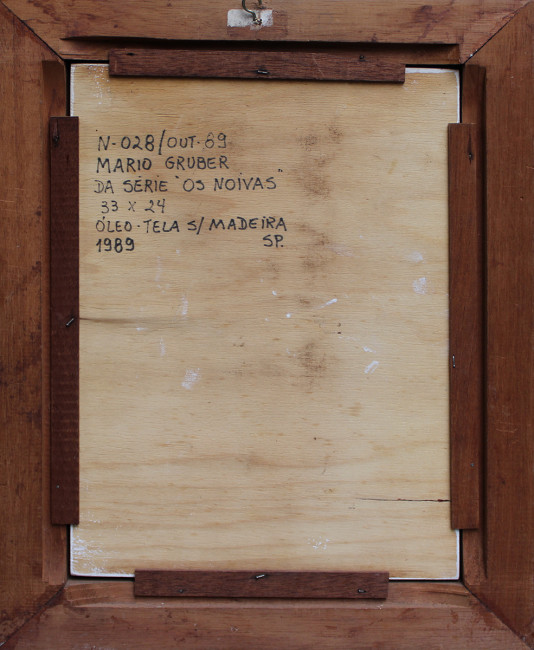 N-028/OUT-89
MARIO GRUBER
DA SÉRIE "OS NOIVAS"
33 X 24
ÓLEO-TELA S/ MADEIRA
1989 SP.